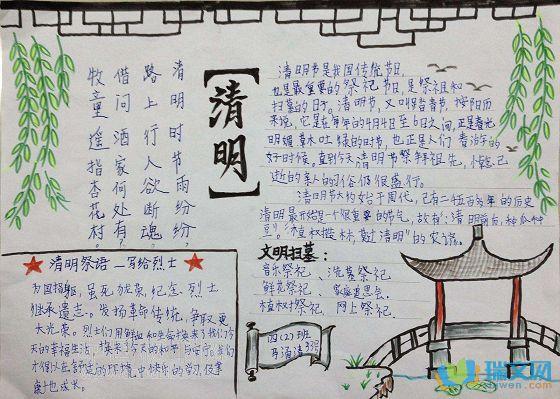 【清明】
清明时节雨纷纷，
路上行人欲断魂。
借问酒家何处有，
牧童遥指杏花村。
清明节是我国传统节日，
也是最重要的祭祀节日，是祭祖和
扫墓的日子。清明节，又叫踏青节，按阳历
来说，它是在每年的4月4日至6日之间，正是春光
明媚草木吐绿的时节，也正是人们春游的
好时候，直到今天清明节祭拜祖先，悼念已
逝的亲人的习俗仍很盛行。
清明节大约始于周代，已有二千五百多年的历史
清明最开始是一个很重要的节气，故有：清明前后，种瓜种
豆。"植树造林，莫过清明"的农谚。
文明扫墓：
音乐祭祀、洗墓祭祀
鲜花祭祀、家庭追思会
植树祭祀、网上祭祀。
清明祭语—写给烈士
为国捐躯，虽死犹荣，纪念烈士
继承遗志。发扬革命传统，争取更
大光荣。烈士们用鲜血和生命换来了我们今
天的幸福生活，换来了今天的和平与安宁。我们
才得以在舒适的环境中快乐的学习，健康
四(2)班
瑞文网
ruiwen.com